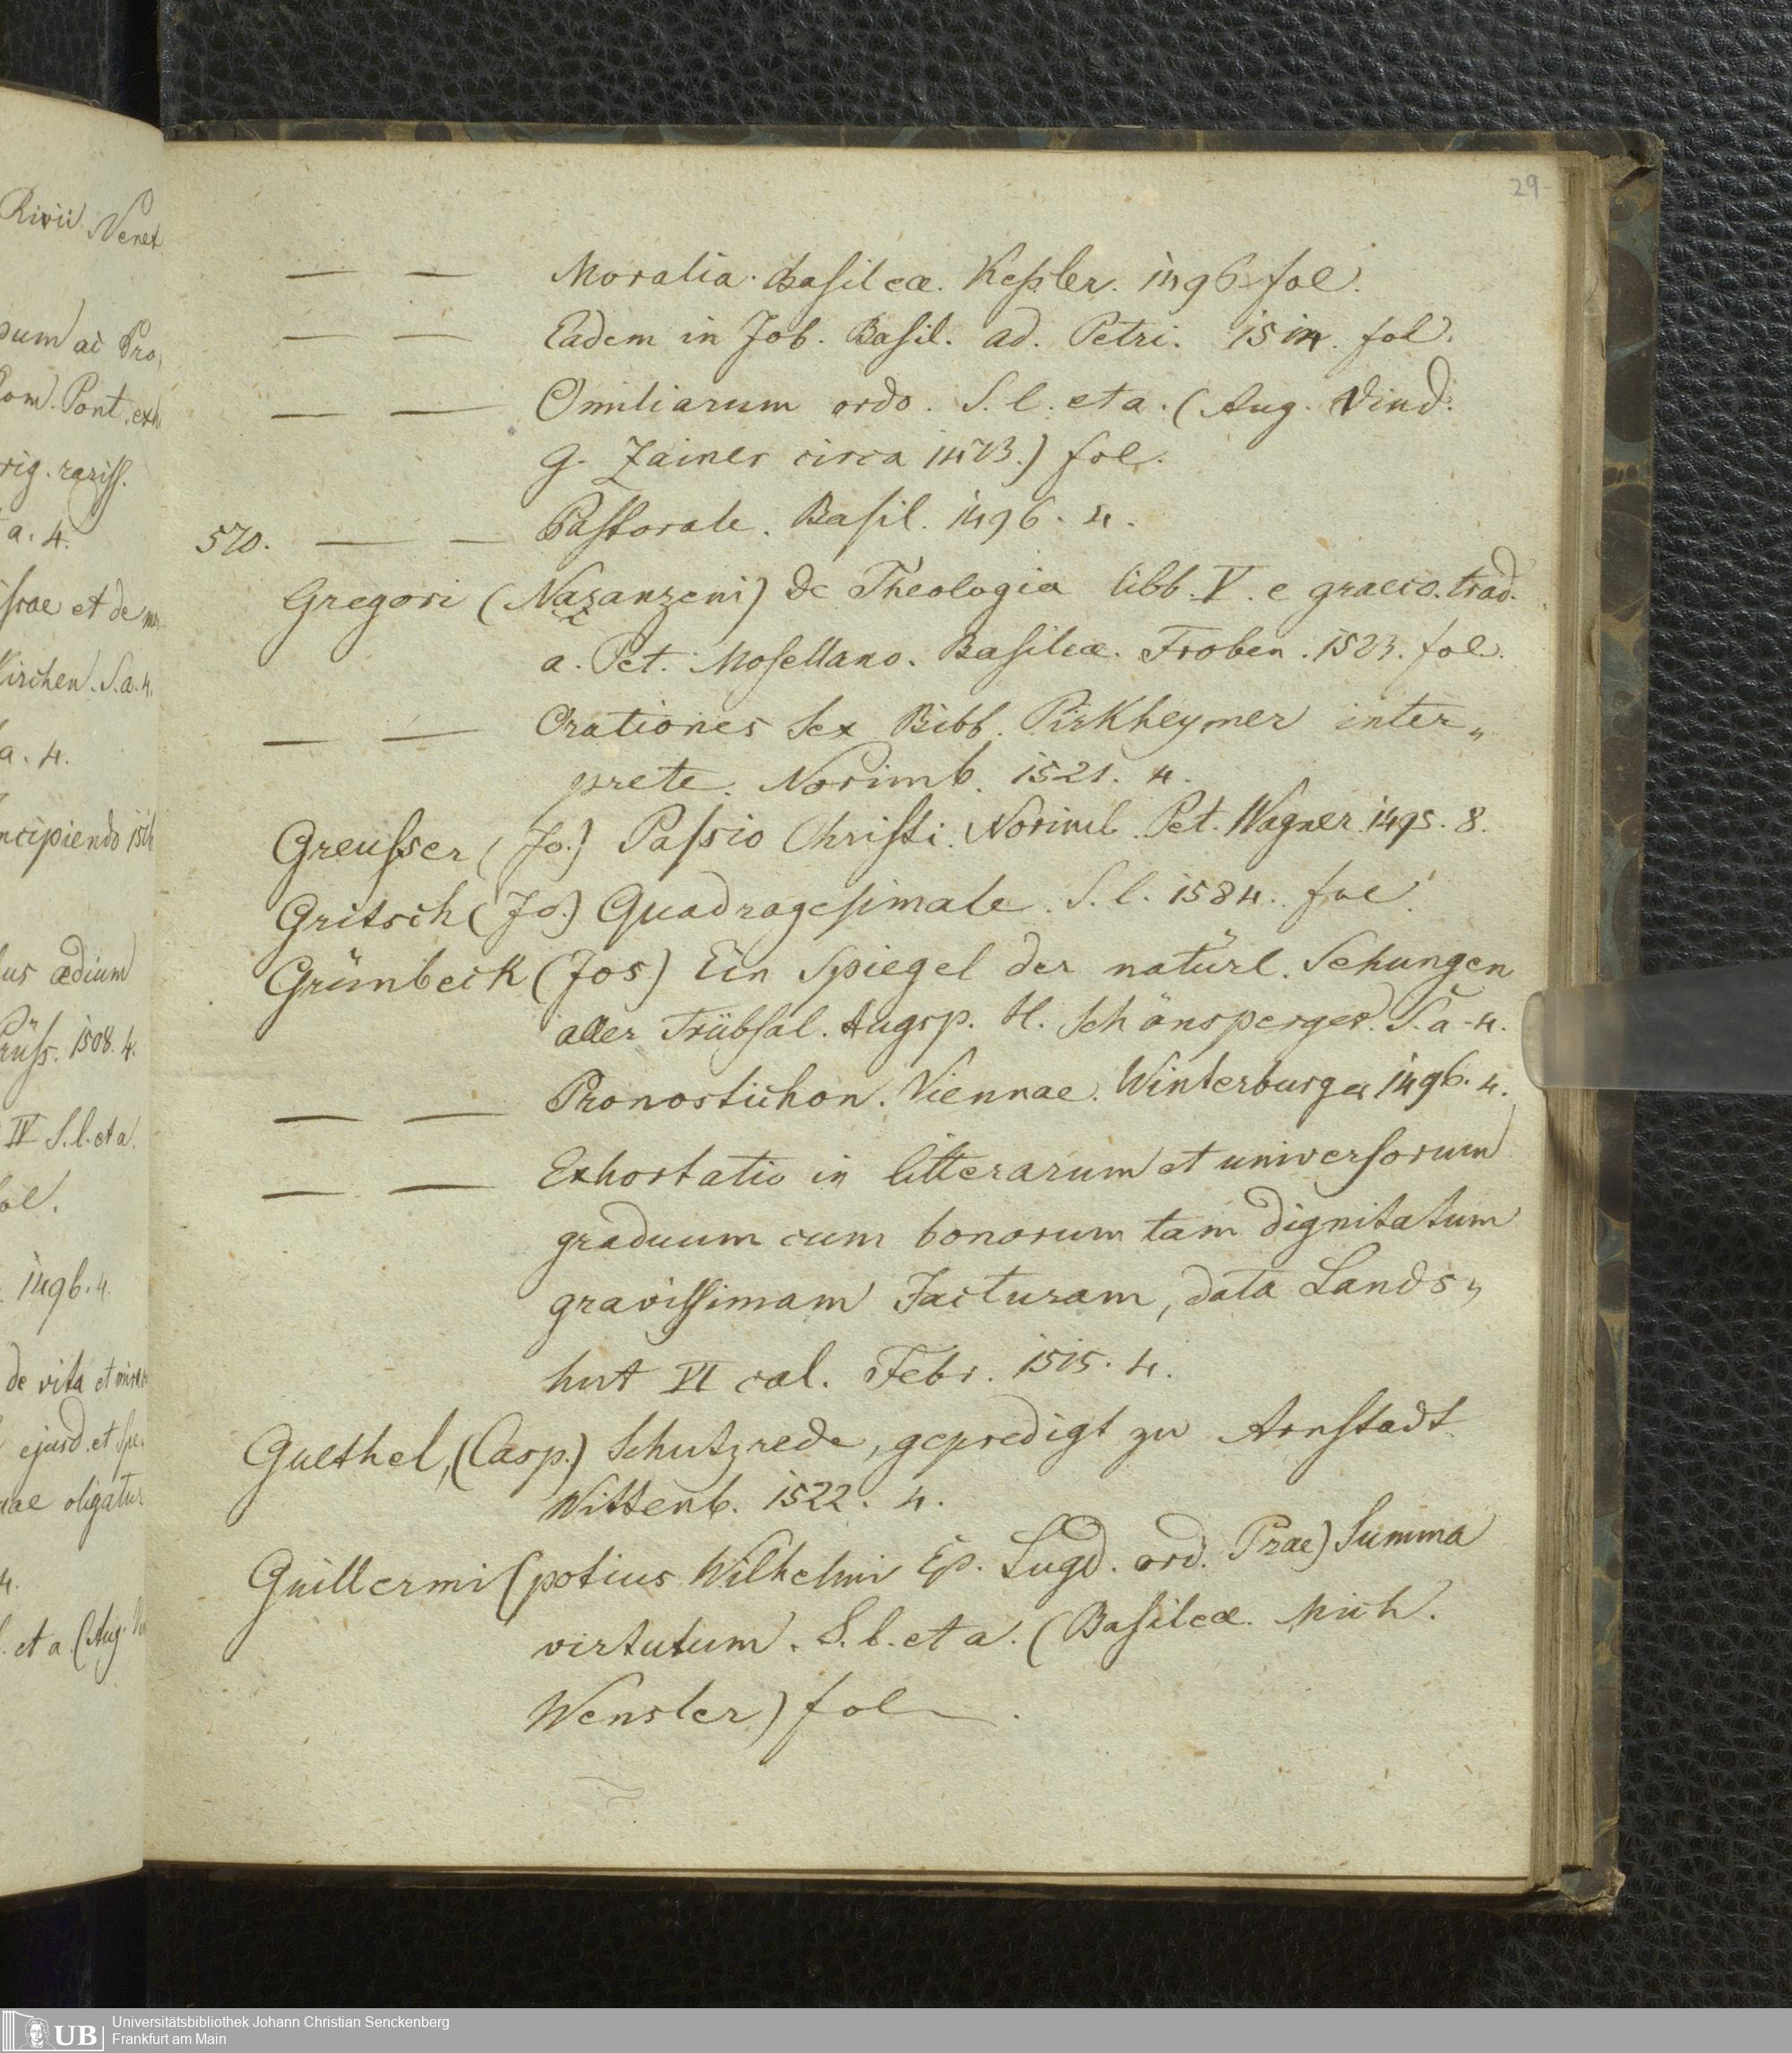 29
— — Moralia. Basileæ. Keßler. 1496 fol.
— — Eadem in Job. Basil. ad. Petri. 1514. fol.
— — Omiliarum ordo. S. l. et a. (Aug. Vind.
G. Zainer circa 1473.) fol.
570. — — Pastorale. Basil. 1496. 4.
Gregori (Nazanzeni) De Theologia libb. V. e graeco. trad.
a. Pet. Mosellano. Basileæ. Froben. 1523. fol.
— — Orationes sex Bibb. Pirkheymer inter„
prete. Norimb. 1521. 4.
Greusser (Jo.) Passio Christi. Norimb. Pet. Wagner. 1495. 8.
Gritsch (Jo.) Quadragesimale. S. l. 1584. fol.
Grünbeck (Jos) Ein Spiegel der natürl. Sehungen
aller Trübsal. Augsp. H. Schönsperger. S. a. 4.
— — Pronostichon. Viennae. Winterburger 1496. 4.
— — Exhortatio in litterarum et universorum
graduum cum bonorum tam dignitatum
gravissimam Jacturam, data Lands„
hut VI cal. Febr. 1515. 4.
Guethel, (Casp.) Schutzrede, gepredigt zu Arnstadt
Wittenb. 1522. 4.
Guillermi (potius Wilhelmi Ep. Lugd. ord. Prae) Summa
virtutum. S. l. et a. (Basileæ. Mich.
Wensler) fol.
Rivii Venet
ac Pro,
Pont. exh
rig. rariss.
a. 4.
et de
Kirchen. S. a. 4.
a. 4.
ædium
1508. 4.
IV S. l. et a.
1496. 4.
de vita et
ejusd. et Spe
4.
et a. (Aug.
UB
Universitätsbibliothek Johann Christian Senckenberg
Frankfurt am Main